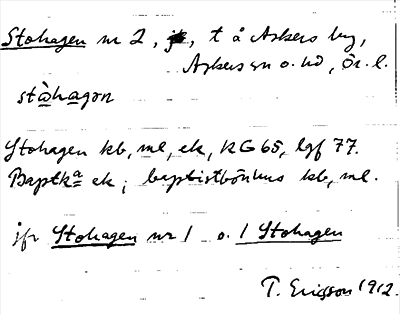 Stohagen nr 2, , t å Askers by,
Askers sn o. hd, Ör. l.
stå̀hagɷn
Stohagen kb, ml, ek, RG 65, lgf 77.
Baptka ek; baptistbönhus kb, ml.
jfr Stohagen nr 1 o. 1 Stohagen
T. Ericsson 1912.